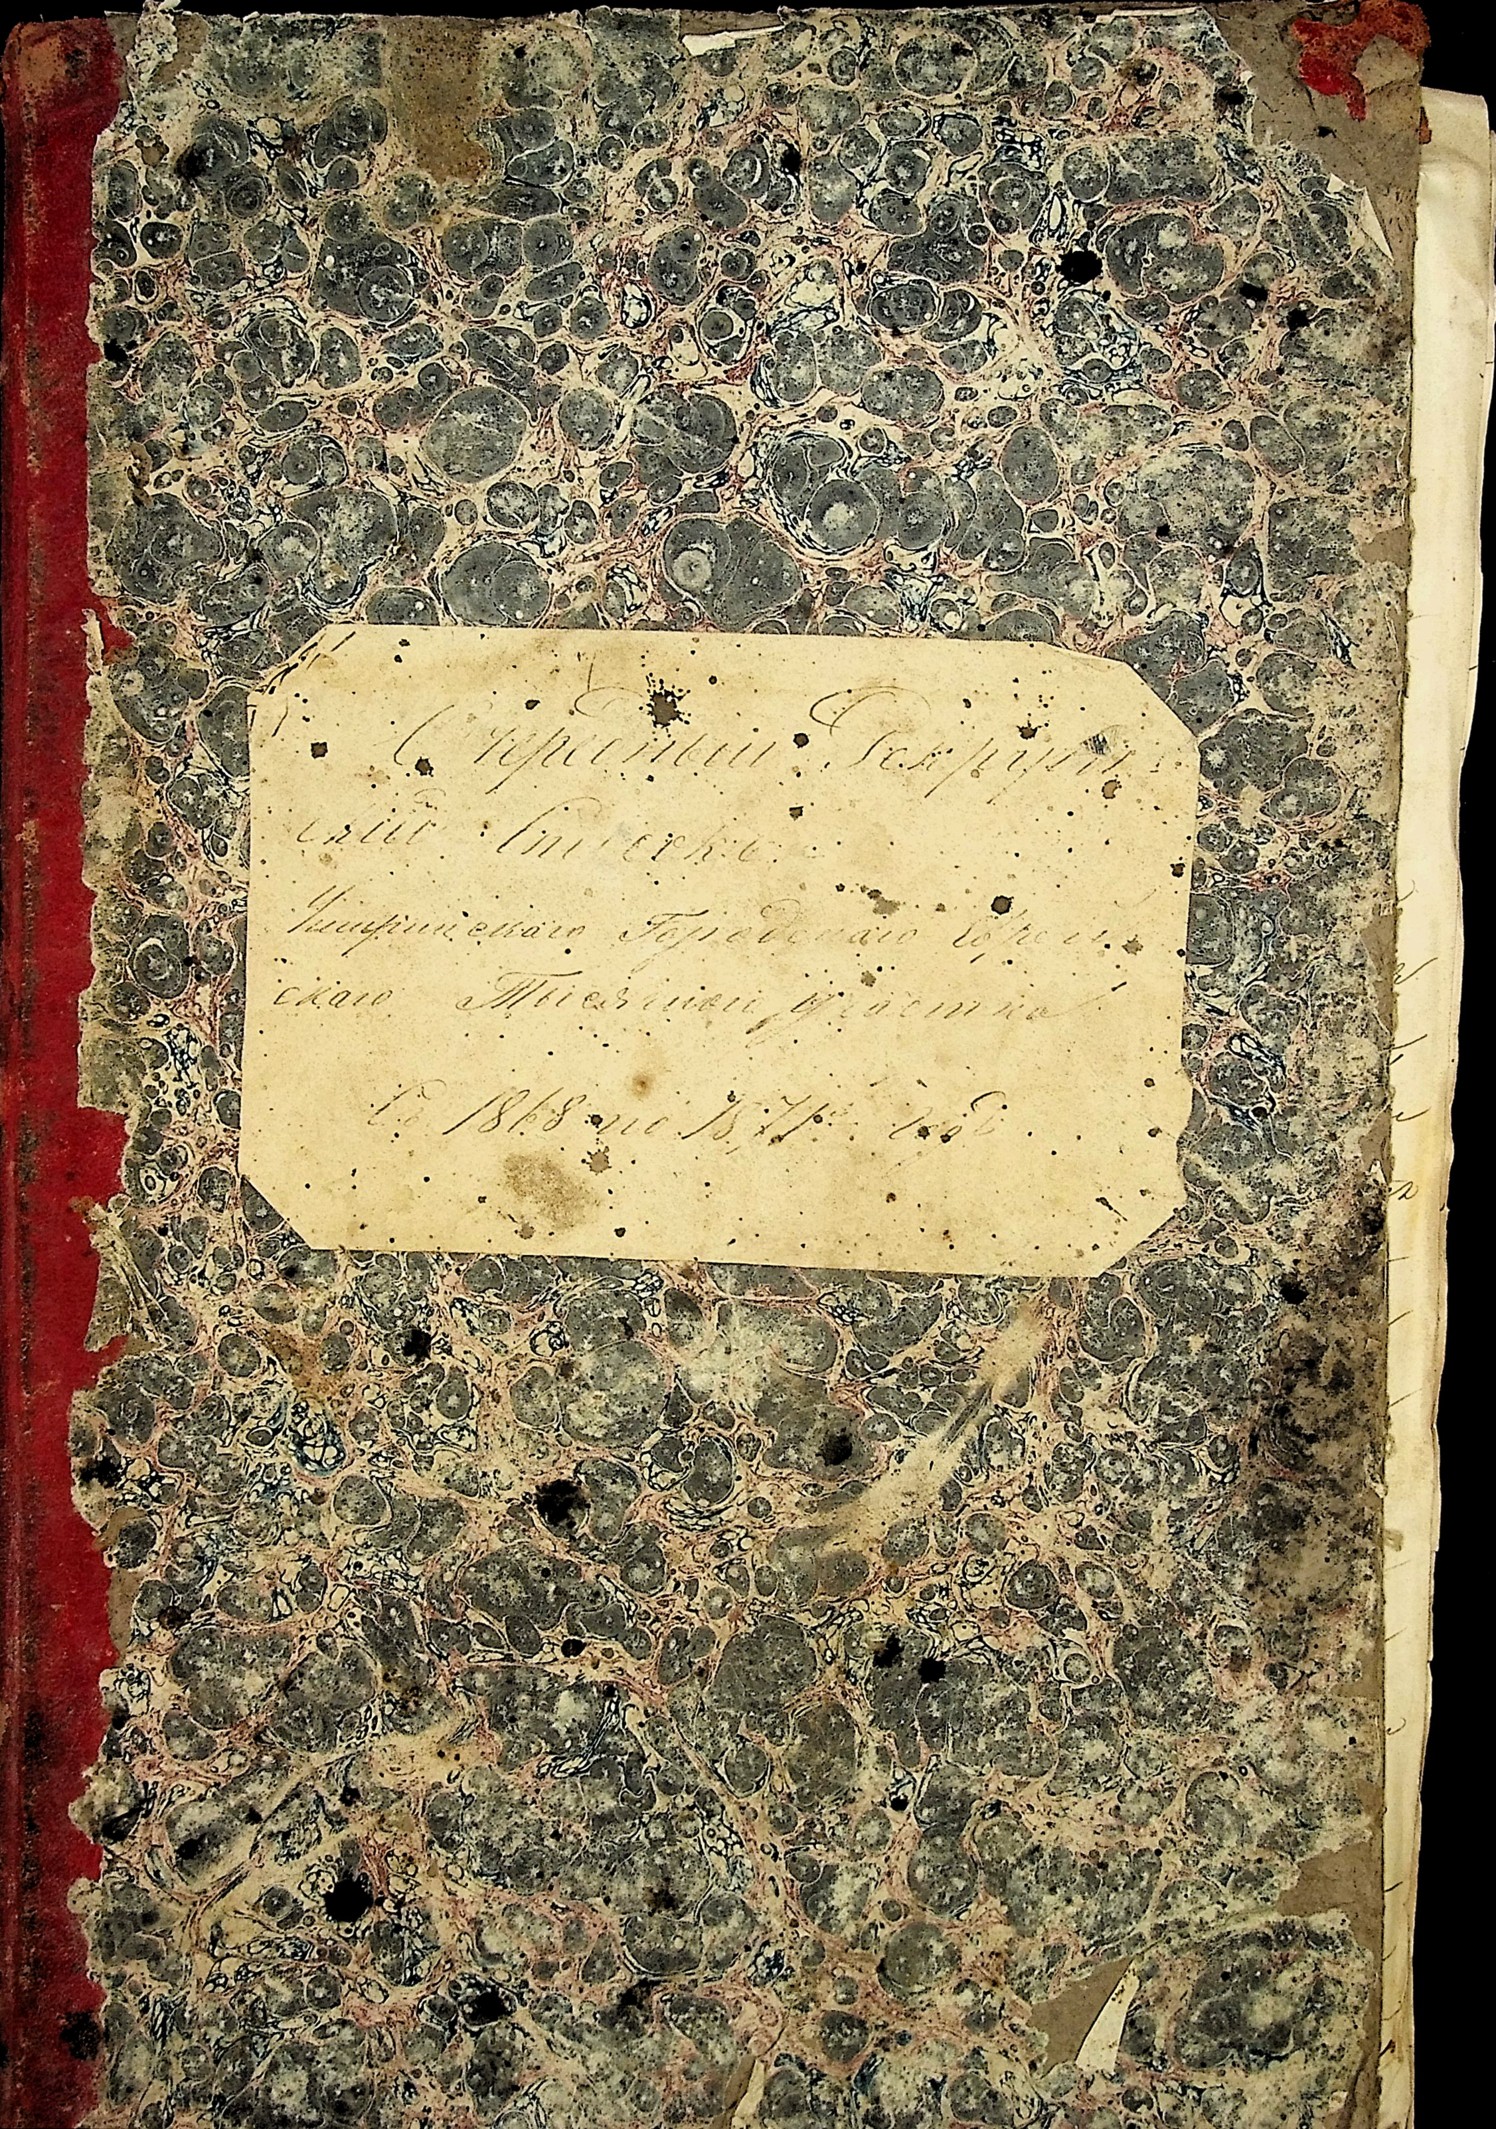 Очередный Рекрут-
скій Списокъ
Городскаго Еврей-
скаго Тысячнаго участка
Съ 1868 по 1871й годъ.